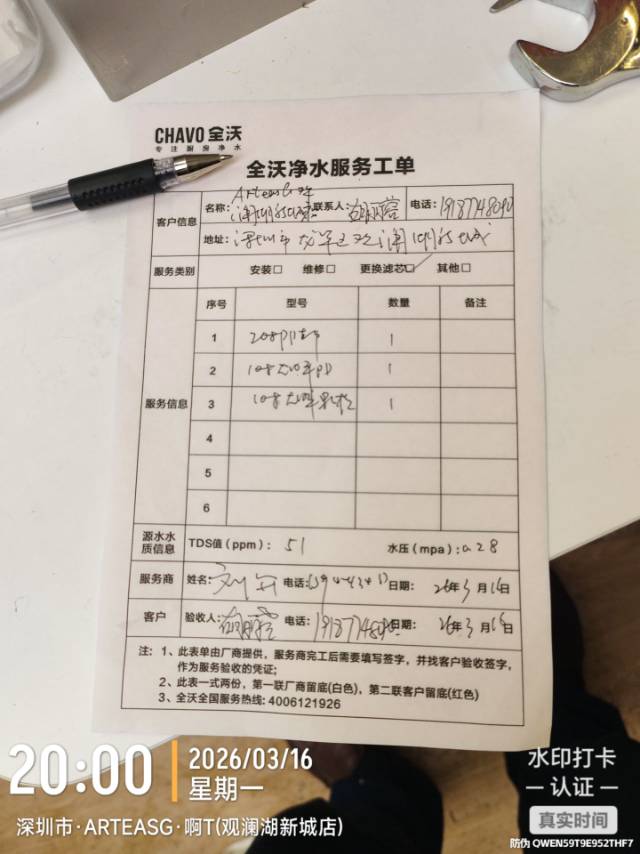 CHAVO 全沃
专注厨房净水
全沃净水服务工单
客户信息
名称: Arteasg 联系人: 电话: 19187748090
地址: 深圳市龙华区观澜湖新城
服务类别 安装□ 维修□ 更换滤芯□✓ 其他□
服务信息
序号 型号 数量 备注
1 1
2 1
3 1
4
5
6
源水水质信息 TDS值(ppm): 51 水压(mpa): 0.28
服务商 姓名: 电话: 日期: 26年3月16日
客户 验收人: 电话: 日期: 26年3月16日
注: 1、此表单由厂商提供,服务商完工后需要填写签字,并找客户验收签字,
作为服务验收的凭证;
2、此表一式两份,第一联厂商留底(白色),第二联客户留底(红色)
3、全沃全国服务热线: 4006121926
20:00
2026/03/16
星期一
深圳市·ARTEASG·啊T(观澜湖新城店)
水印打卡
认证
真实时间
防伪 QWEN59T9E952THF7